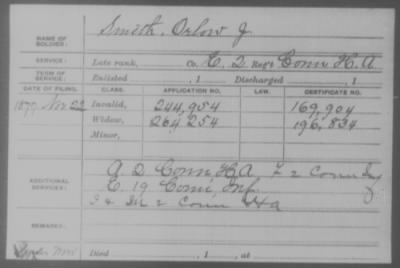 NAME OF SOLDIER: Smith, Orlow J
SERVICE: Late rank, Co. E, 2 Reg't Conn H. A
TERM OF SERVICE: Enlisted , 1 Discharged , 1
DATE OF FILING. CLASS. APPLICATION NO. LAW. CERTIFICATE NO.
1879 Nov 22 Invalid, 244,954 169,904
Widow, 264,254 196,834
Minor,
ADDITIONAL SERVICES: A 2 Conn H A, F 2 Conn
E. 19 Conn Inf.
I & M 2 Conn HA
REMARKS:
Died , 1 , at